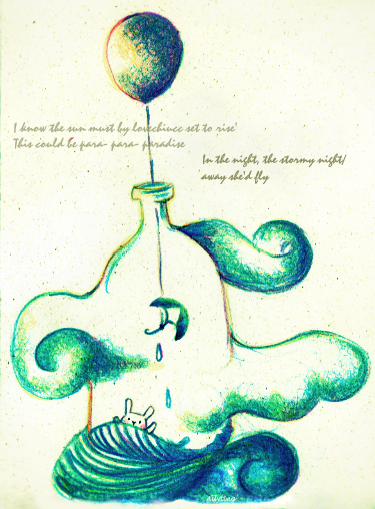 I know the sun must by lovechiucc set to rise'
This could be para- para- paradise
In the night, the stormy night/
away she'd fly